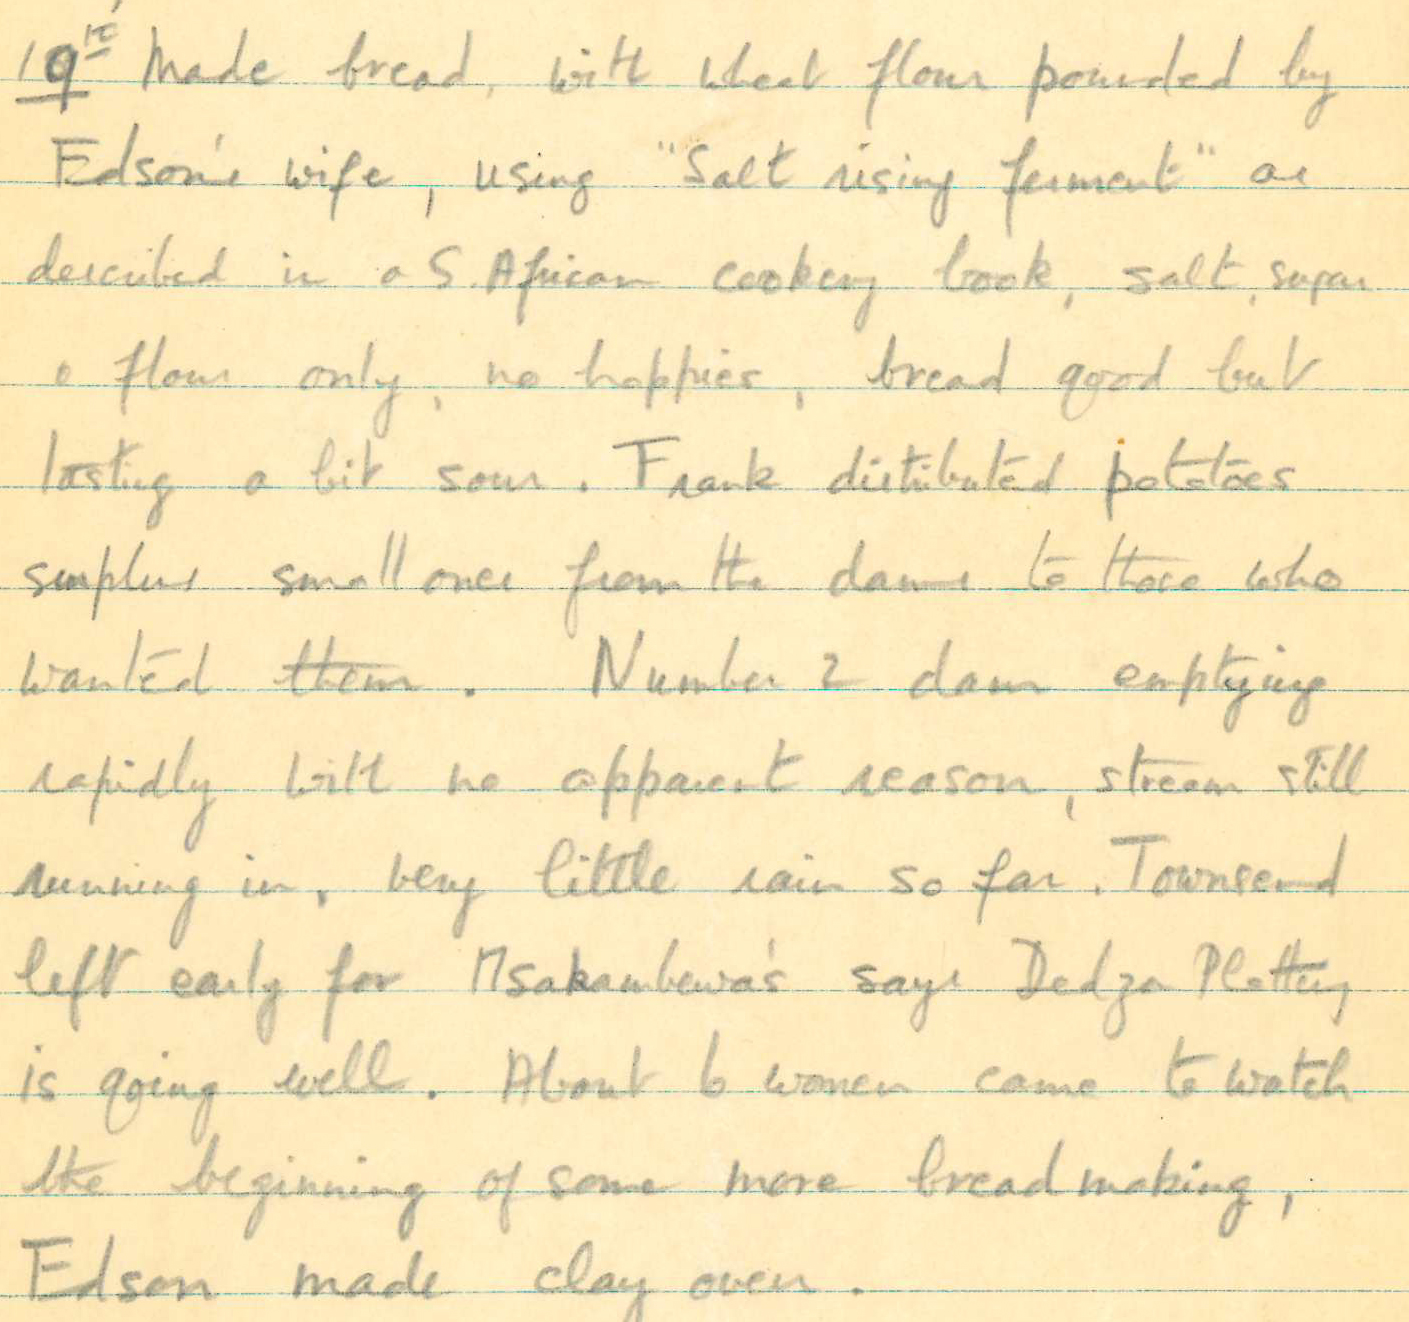 19th Made bread, with wheat flour pounded by
Edson's wife, using "Salt rising ferment" as
described in a S. African cookery book, salt, sugar
& flour only, no hoppies, bread good but
tasting a bit sour. Frank distributed potatoes
surplus small ones from the dams to those who
wanted them. Number 2 dam emptying
rapidly with no apparent reason, stream still
running in, very little rain so far. Townsend
left early for Msakambewa's says Dedza
is going well. About 6 women came to watch
the beginning of some more bread making,
Edson made clay oven.